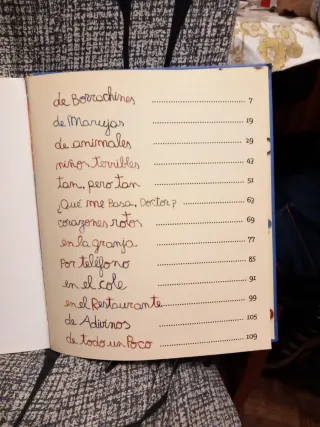 de Borrachines ........ 7
de Marujas ........ 19
de animales ........ 29
niños terribles ........ 43
tan.. pero tan ........ 51
¿Qué me Pasa, Doctor? ........ 63
corazones rotos ........ 69
en la granja ........ 77
Por teléfono ........ 85
en el cole ........ 91
en el Restaurante ........ 99
de Adivinos ........ 105
de todo un Poco ........ 109